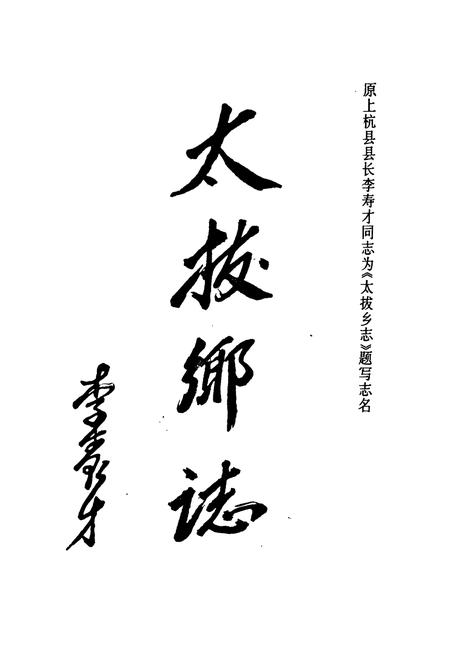 原上杭县县长李寿才同志为《太拔乡志》题写志名
太拔鄉誌
李寿才